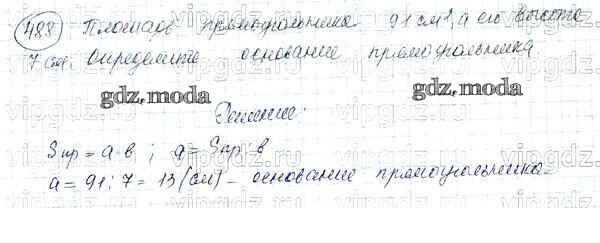 488 Площадь прямоугольника 91 см², а его высота
7 см. Определите основание прямоугольника.
gdz.moda gdz.moda
Решение:
Sпр = a·b ; a = Sпр : b
a = 91 : 7 = 13 (см) – основание прямоугольника.
vipgdz.ru